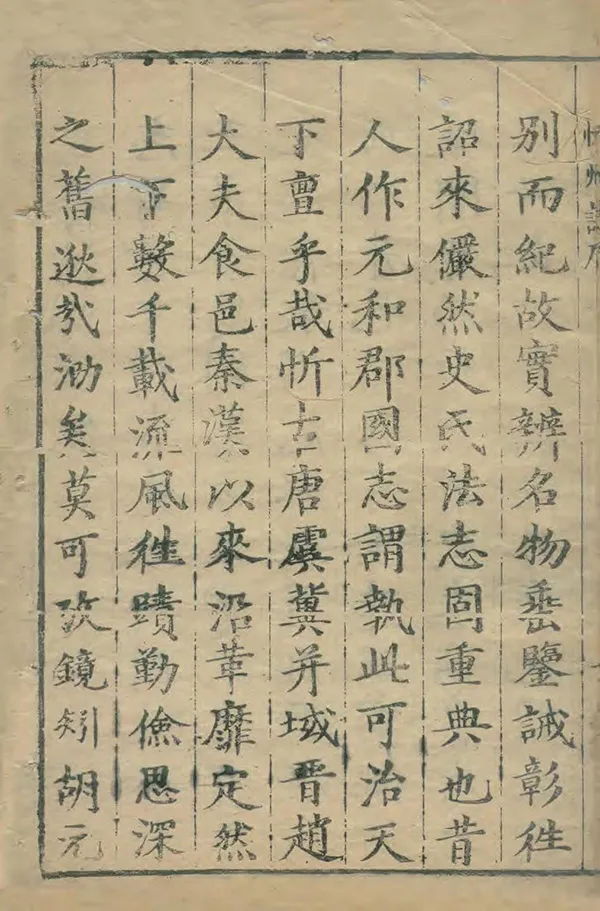 忻州誌序
別而紀故實辨名物垂鑒誡彰徃
詔來儼然史氏法志固重典也昔
人作元和郡國志謂執此可治天
下亶乎哉忻古唐虞冀并域晋趙
大夫食邑秦漢以來沿革靡定然
上下數千載流風徃蹟勤儉思深
之舊逖哉泐矣莫可攷鏡矧胡元